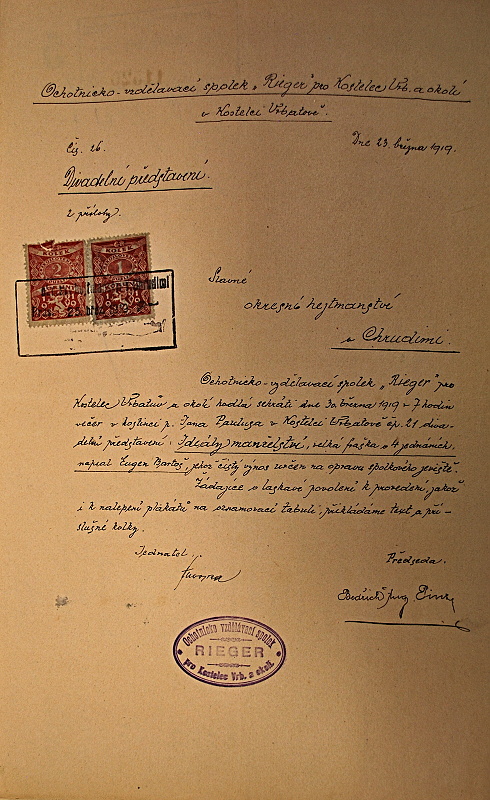 Ochotnicko-vzdělavací spolek „Rieger" pro Kostelec Vrb. a okolí
v Kostelci Vrbatově.
Čís. 26.
Dne 23. března 1919.
Divadelní představení.
2 přílohy.
KOLEK
KOLEK
2
1
Slavné
okresní hejtmanství
v Chrudimi
Ochotnicko-vzdělavací spolek „Rieger" pro
Kostelec Vrbatův a okolí hodlá sehráti dne 30. března 1919 v 7 hodin
večer v hostinci p. Jana Paulusa v Kostelci Vrbatově čp. 21 diva-
delní představení: Ideály manželství, velká fraška v 4 jednáních,
napsal Eugen Bartoš, jehož čistý výnos určen na opravu spolkového jeviště.
Žádajíce o laskavé povolení k provedení, jakož
i k nalepení plakátů na oznamovací tabuli, přikládáme text a pří-
slušné kolky.
Jednatel:
Předseda.
Ochotnicko vzdělávací spolek
RIEGER
pro Kostelec Vrb. a okolí.